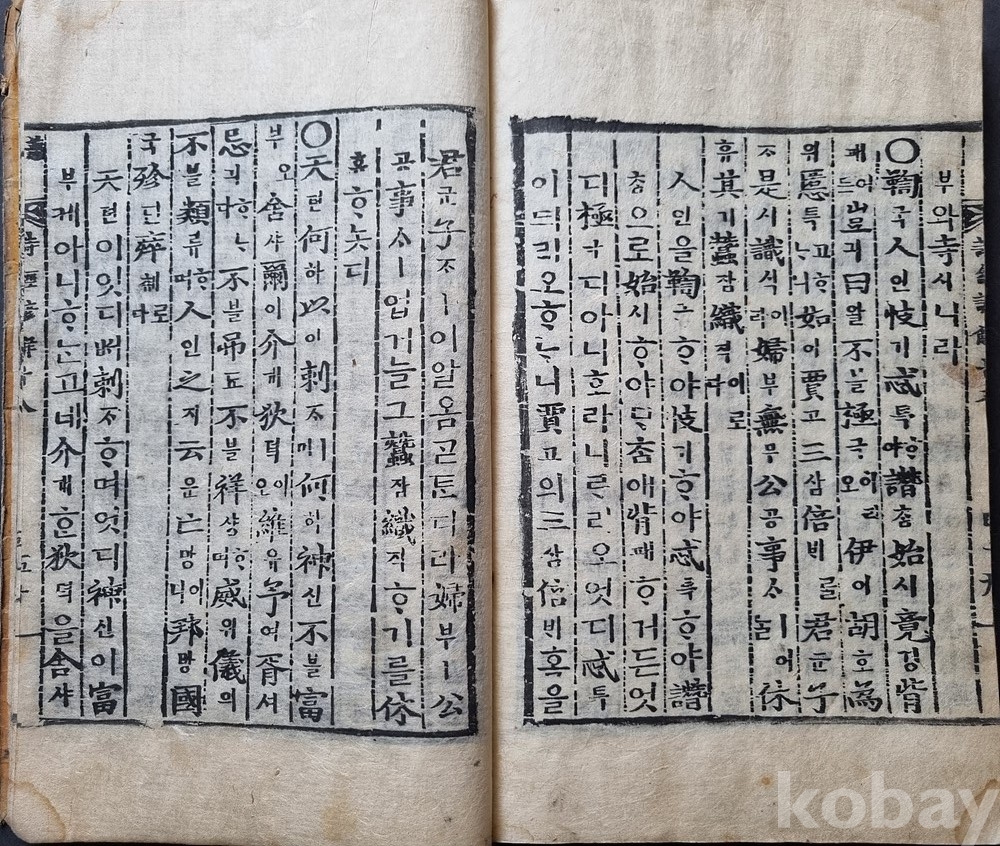 부와寺시니라
○鞫국人인忮기忒특ᄒᆞ야譖춤始시竟경背
패드여豈긔曰왈不블極극이리오伊이胡호爲
위慝특고ᄒᆞᄂᆞ니如여賈고三삼倍비를君군子
ᄌᆞ是시識식이라婦부無무公공事ᄉᆞㅣ어늘休
휴其기蠶잠織직이로다
人인을鞫국ᄒᆞ야忮기ᄒᆞ야忒특ᄒᆞ야譖
춤으로始시ᄒᆞ야ᄆᆞᄎᆞᆷ애背패ᄒᆞ거든엇
디極극디아니호라니ᄅᆞ리오엇디慝특
이되리오ᄒᆞᄂᆞ니賈고의三삼倍비혹을
君군子ᄌᆞㅣ이알옴ᄀᆞᆮᄐᆞ니라婦부ㅣ公
공事ᄉᆞㅣ업거늘그蠶잠織직ᄒᆞ기를休
휴ᄒᆞ놋다
○天텬何하以이刺ᄌᆞ며何하神신不블富
부오舍샤爾이介개狄뎍이오維유予여胥셔
忌긔ᄒᆞᄂᆞ다不블弔됴不블祥샹ᄒᆞ며威위儀의
不블類류ᄒᆞ며人인之지云운亡망이니邦방國
국殄딘瘁췌로다
天텬이엇디ᄡᅥ刺ᄌᆞᄒᆞ며엇디神신이富
부케아니ᄒᆞᄂᆞᆫ고네介개ᄒᆞᆫ狄뎍을舍샤
詩經諺解十八
kobay